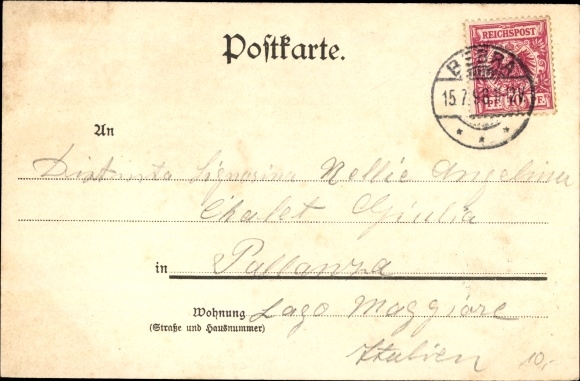 Postkarte.
REICHSPOST
BEBRA
15.7.98
An
Distinta Signorina Nellie Angelina
Chalet Giulia
in Pallanza
Wohnung Lago Maggiore
(Straße und Hausnummer)
Italien
10,-